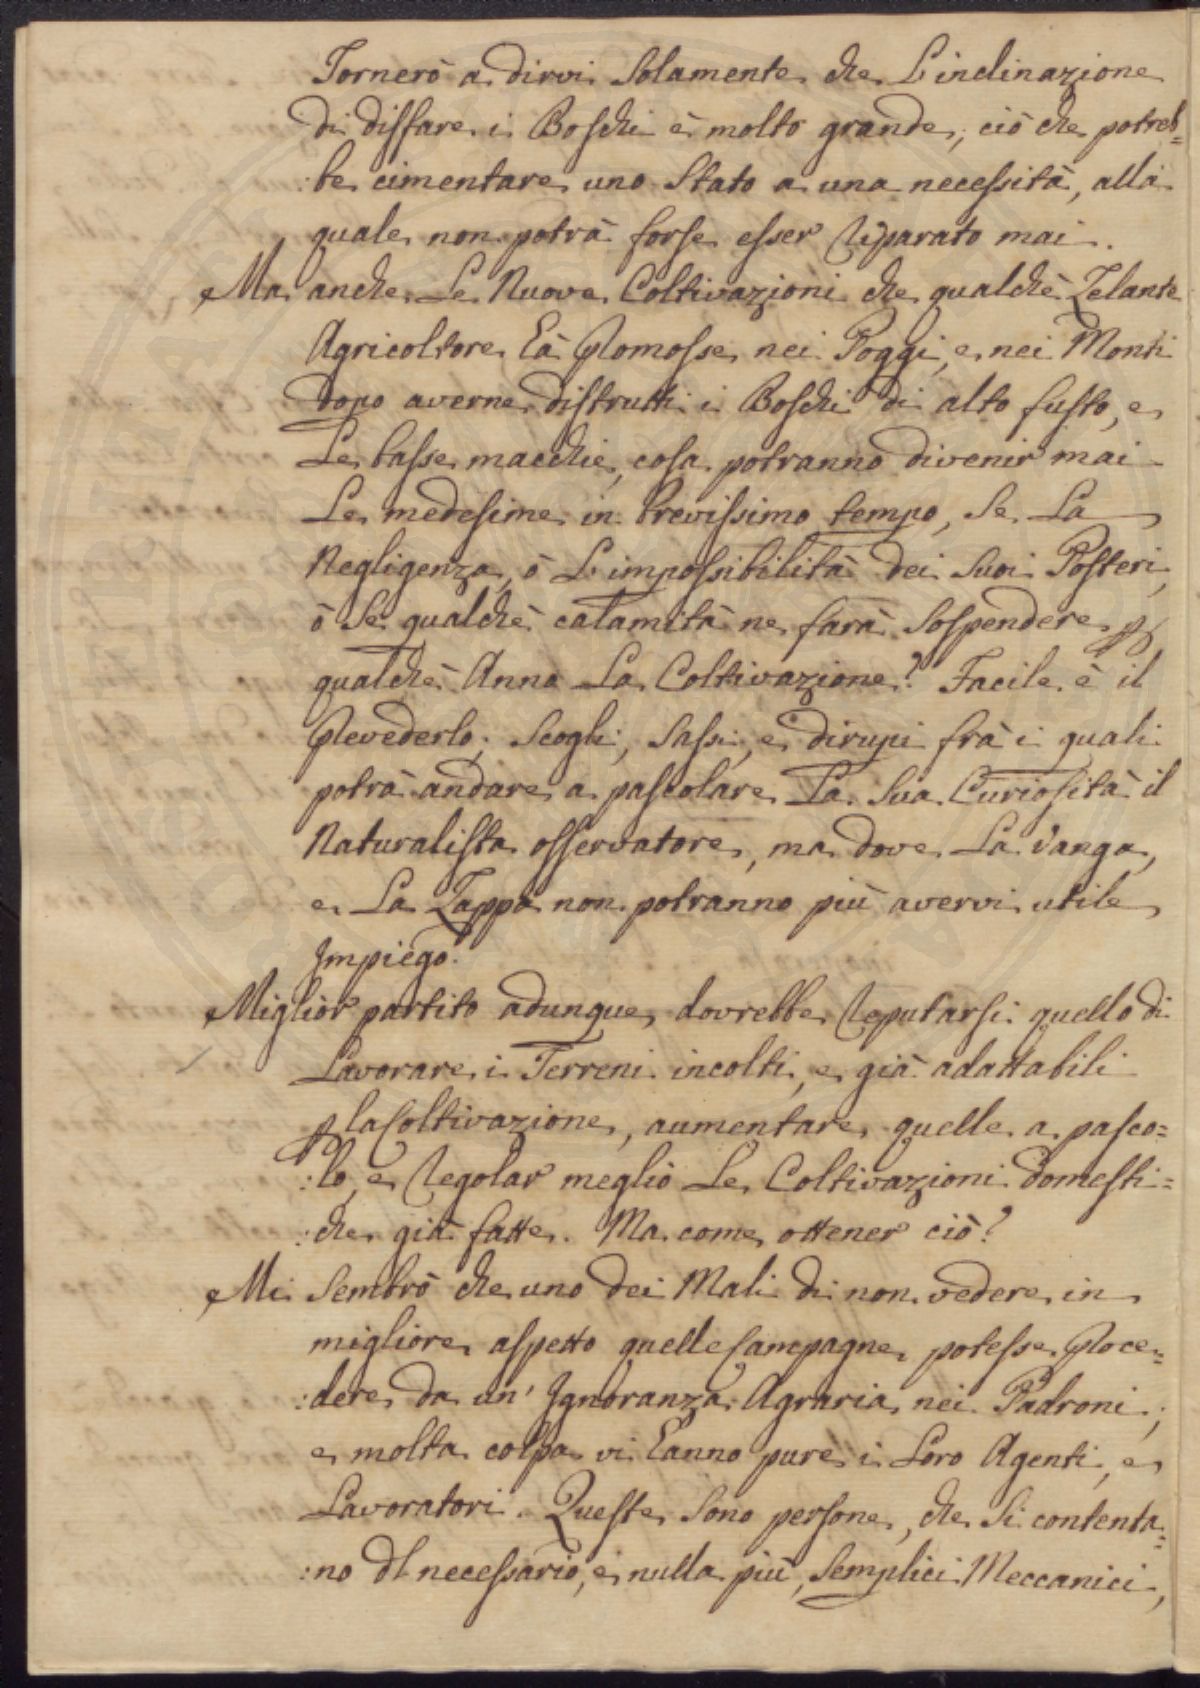 Tornerò a dirvi solamente che L'inclinazione
di disfare i Boschi è molto grande, ciò che potreb=
:be cimentare uno Stato a una necessità, alla
quale non potrà forse esser riparato mai.
Ma anche Le Nuove Coltivazioni che qualchè Zelante
Agricoltore hà promosse nei Poggi, e nei Monti
dopo averne distrutti i Boschi di alto fusto, e
Le basse macchie, cosa potranno divenir mai
Le medesime in brevissimo tempo, se La
Negligenza, ò L'impossibilità dei suoi Posteri,
ò se qualchè calamità ne farà sospendere p
qualchè Anno La Coltivazione? Facile è il
prevederlo; Scogli, Sassi, e dirupi frà i quali
potrà andare a pascolare La sua Curiosità il
Naturalista osservatore, ma dove La Vanga,
e La Zappa non potranno più avervi utile
Impiego.
Miglior partito adunque dovrebbe reputarsi quello di
Lavorare i Terreni incolti, e già adattabili
p la Coltivazione, aumentare quelle a pasco=
:lo, e regolar meglio Le Coltivazioni domesti=
:che già fatte. Ma come ottener ciò?
Mi sembrò che uno dei Mali di non vedere in
migliore aspetto quelle Campagne potesse proce=
:dere da un' Ignoranza Agraria nei Padroni;
e molta colpa vi hanno pure i Loro Agenti, e
Lavoratori. Queste sono persone, che si contenta=
:no dl necessario, e nulla più, semplici Meccanici,